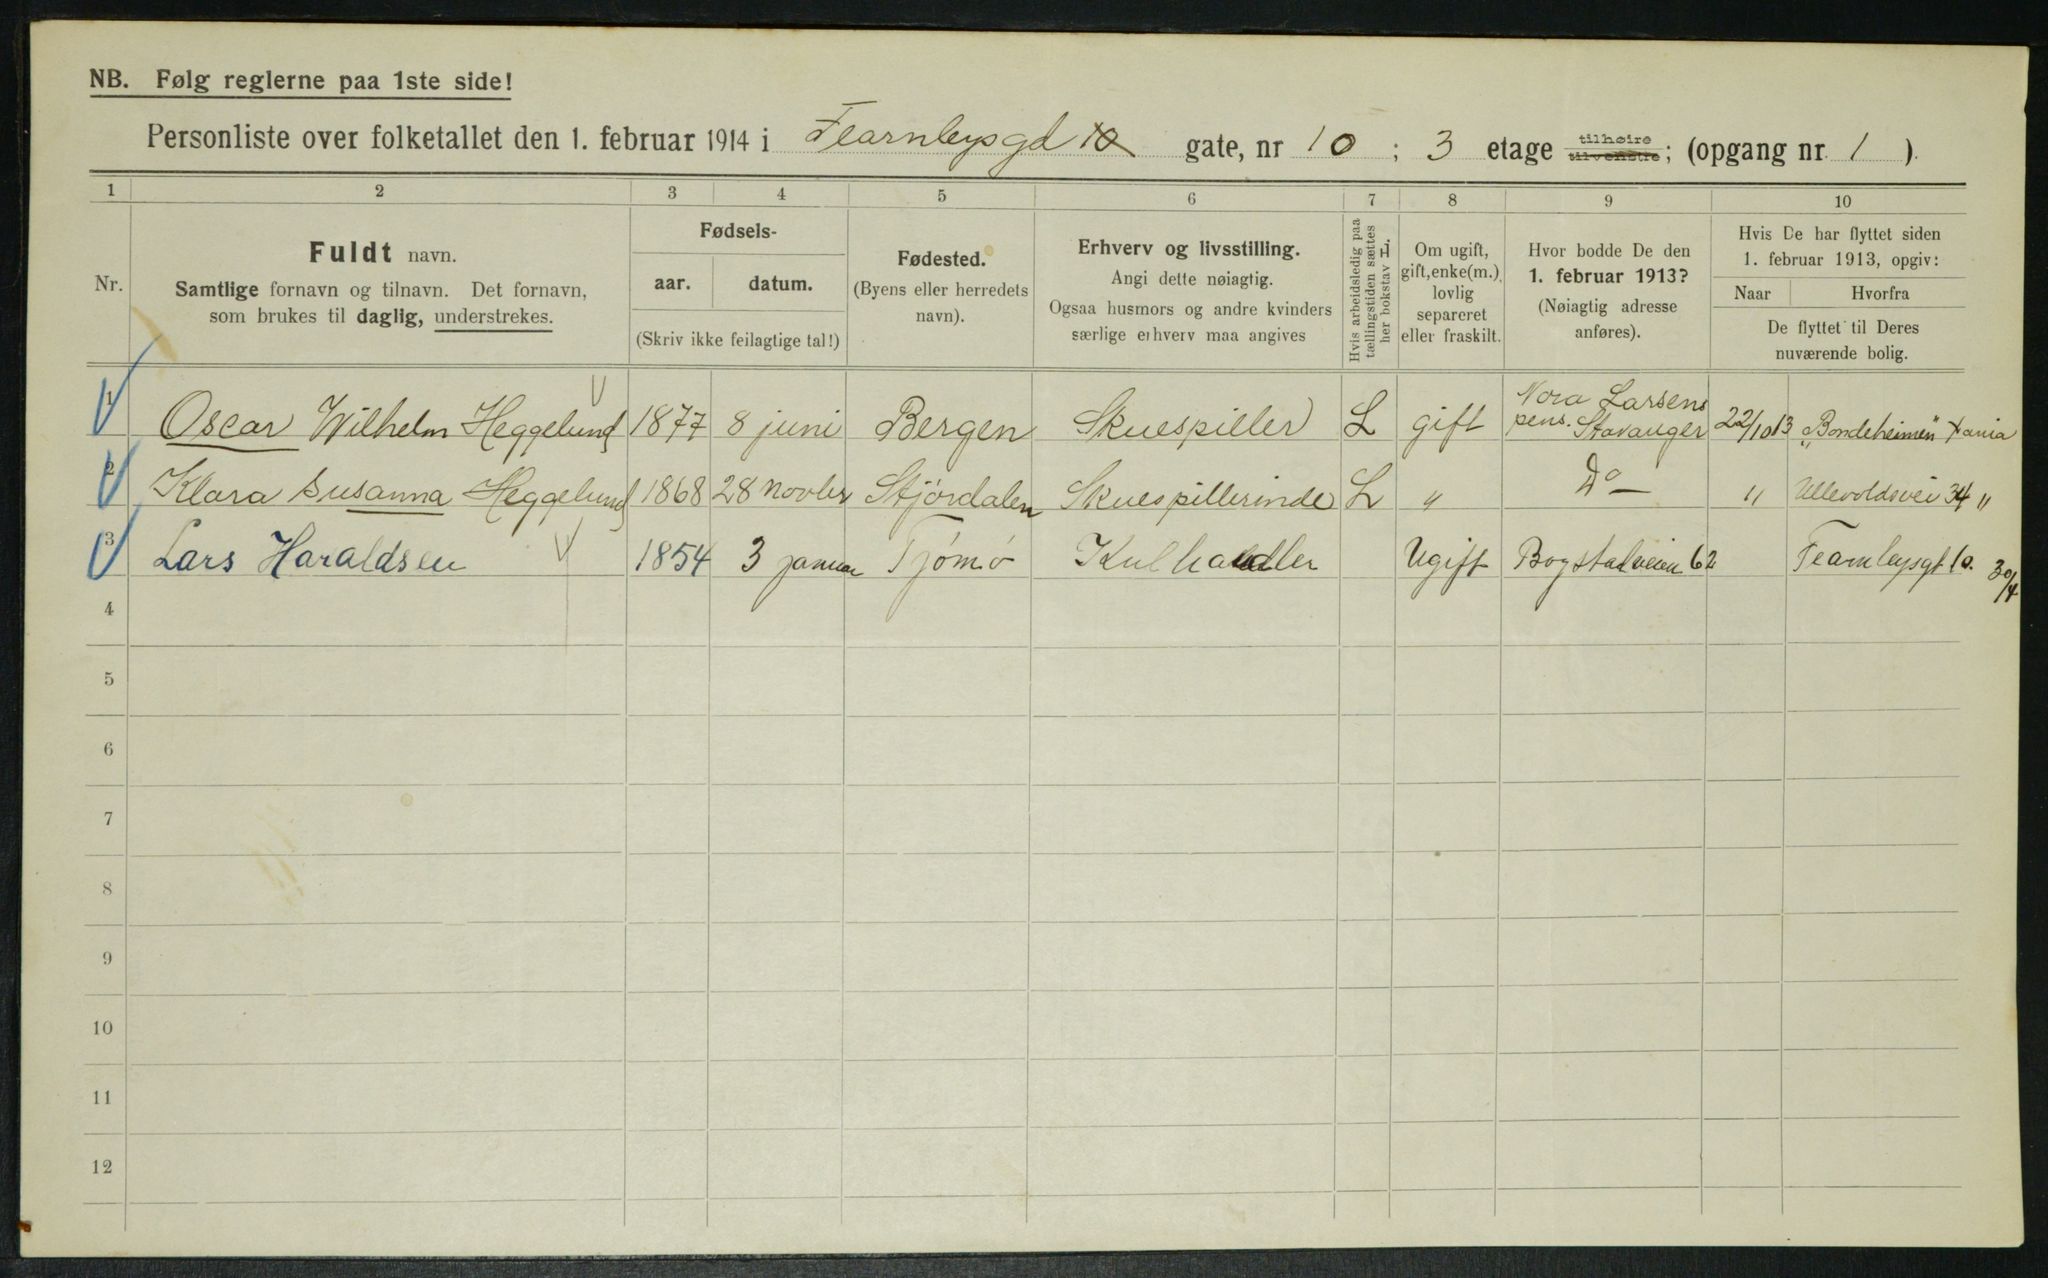 NB. Følg reglerne paa 1ste side!
Personliste over folketallet den 1. februar 1914 i Fearnleysgd 10 gate, nr 10 ; 3 etage tilhøire tilvenstre; (opgang nr. 1 ).
1 2 3 4 5 6 7 8 9 10
Nr.
Fuldt navn.
Samtlige fornavn og tilnavn. Det fornavn,
som brukes til daglig, understrekes.
Fødsels-
aar. datum.
(Skriv ikke feilagtige tal!)
Fødested.
(Byens eller herredets
navn).
Erhverv og livsstilling.
Angi dette nøiagtig.
Ogsaa husmors og andre kvinders
særlige erhverv maa angives
Hvis arbeidsledig paa
tællingstiden sættes
her bokstav L.
Om ugift,
gift, enke(m.),
lovlig
separeret
eller fraskilt.
Hvor bodde De den
1. februar 1913?
(Nøiagtig adresse
anføres).
Hvis De har flyttet siden
1. februar 1913, opgiv:
Naar Hvorfra
De flyttet til Deres
nuværende bolig.
1 Oscar Wilhelm Heggelund 1877 8 juni Bergen Skuespiller L gift Nora Larsens pens. Stavanger 22/10 13 "Bondeheimen" Xania
2 Klara Susanna Heggelund 1868 28 novbr Stjørdalen Skuespillerinde L " Do " Ullevoldsvei 34 "
3 Lars Haraldsen 1854 3 januar Tjømø Kulhandler Ugift Bogstadveien 62 Fearnleysgt 10. 30/4
4
5
6
7
8
9
10
11
12